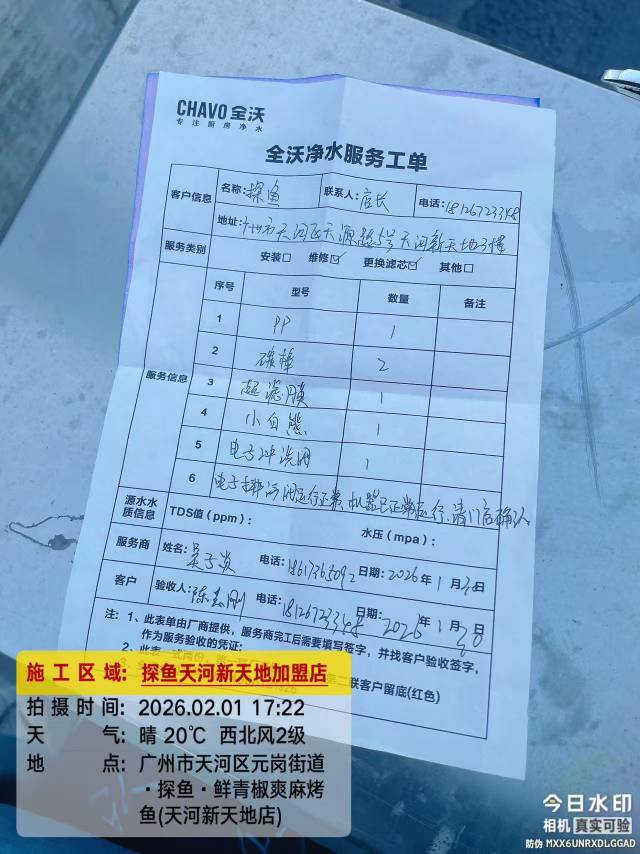 CHAVO 全沃
专注厨房净水
全沃净水服务工单
客户信息 名称:探鱼 联系人:店长 电话:18126723348
地址:广州市天河区天源路 号天河新天地3楼
服务类别 安装□ 维修☑ 更换滤芯☑ 其他□
服务信息
序号 型号 数量 备注
1 PP 1
2 碳棒 2
3 超滤膜 1
4 小白熊 1
5 电子冲洗阀 1
6 电子 阀运行正常,机器已正常运行,请门店确认
源水水质信息 TDS值(ppm): 水压(mpa):
服务商 姓名: 电话:18617365092 日期:2026年1月30
客户 验收人:陈 刚 电话:18126723348 日期:2026年1月30
注:1、此表单由厂商提供,服务商完工后需要填写签字,并找客户验收签字,
作为服务验收的凭证;
2、此表一式两份,第一 二联客户留底(红色)
施工区域:探鱼天河新天地加盟店
拍摄时间:2026.02.01 17:22
天气:晴 20℃ 西北风2级
地点:广州市天河区元岗街道
·探鱼·鲜青椒爽麻烤
鱼(天河新天地店)
今日水印
相机 真实可验
防伪 MXX6UNRXDLGGAD